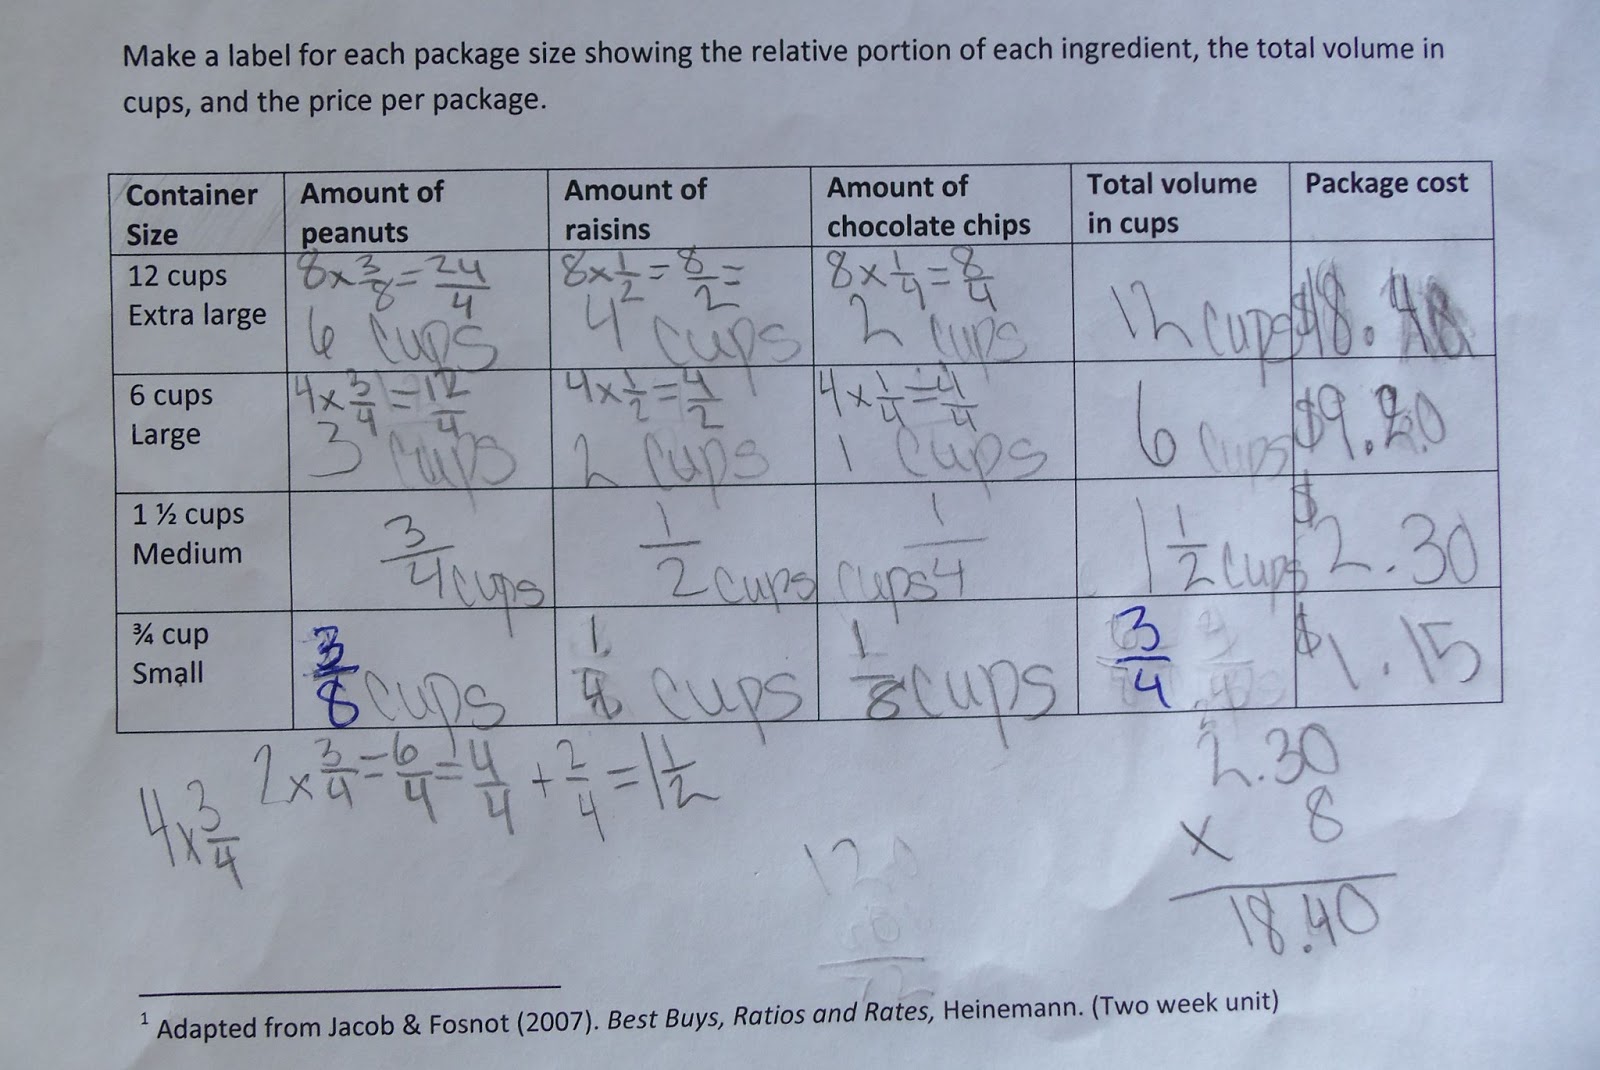 Make a label for each package size showing the relative portion of each ingredient, the total volume in
cups, and the price per package.
Container Size
Amount of peanuts
Amount of raisins
Amount of chocolate chips
Total volume in cups
Package cost
12 cups
Extra large
8 x 3/8 = 24/4
6 cups
8 x 1/2 = 8/2 =
4 cups
8 x 1/4 = 8/4
2 cups
12 cups
$18.40
6 cups
Large
4 x 3/4 = 12/4
3 cups
4 x 1/2 = 4/2
2 cups
4 x 1/4 = 4/4
1 cups
6 cups
$9.20
1 ½ cups
Medium
3/4 cups
1/2 cups
1/4 cups
1 1/2 cups
$2.30
¾ cup
Small
3/8 cups
1/4 cups
1/8 cups
3/4
$1.15
2 x 3/4 = 6/4 = 4/4 + 2/4 = 1 1/2
4 x 3/4
2.30
x 8
18.40
1 Adapted from Jacob & Fosnot (2007). Best Buys, Ratios and Rates, Heinemann. (Two week unit)